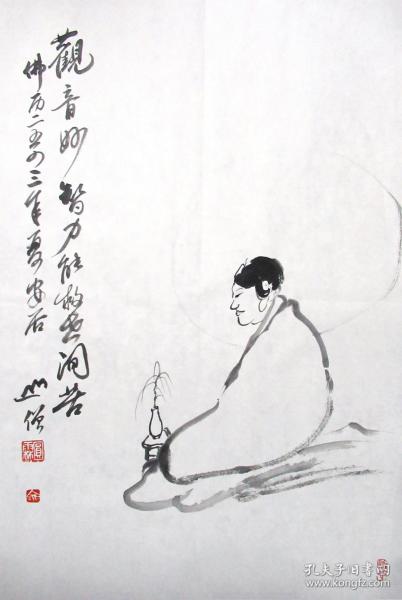 觀音妙智力能救世间苦
佛历二五四三年夏安居
孔夫子旧书网
www.kongfz.com